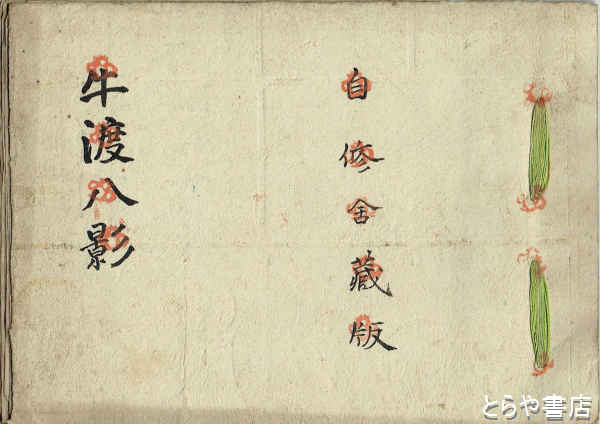 自修舎藏版
牛渡八影
とらや書店